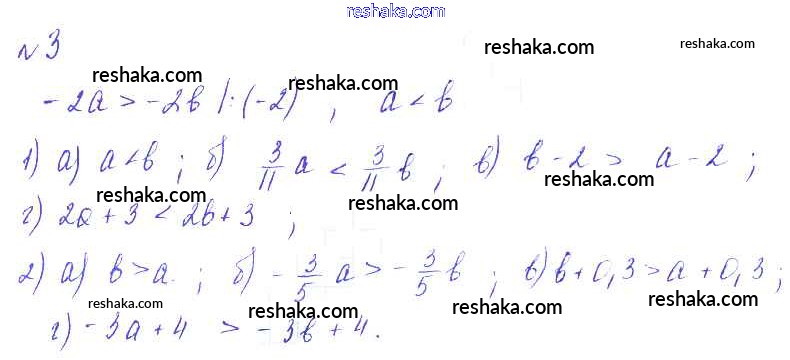 reshaka.com
№3
reshaka.com
reshaka.com reshaka.com
-2a > -2b |:(-2) ; a < b
reshaka.com reshaka.com
1) а) a < b ; б) 3/11 a < 3/11 b ; в) b - 2 > a - 2 ;
reshaka.com reshaka.com
г) 2a + 3 < 2b + 3 ;
reshaka.com reshaka.com
2) а) b > a ; б) -3/5 a > -3/5 b ; в) b + 0,3 > a + 0,3 ;
reshaka.com reshaka.com reshaka.com
г) -3a + 4 > -3b + 4.